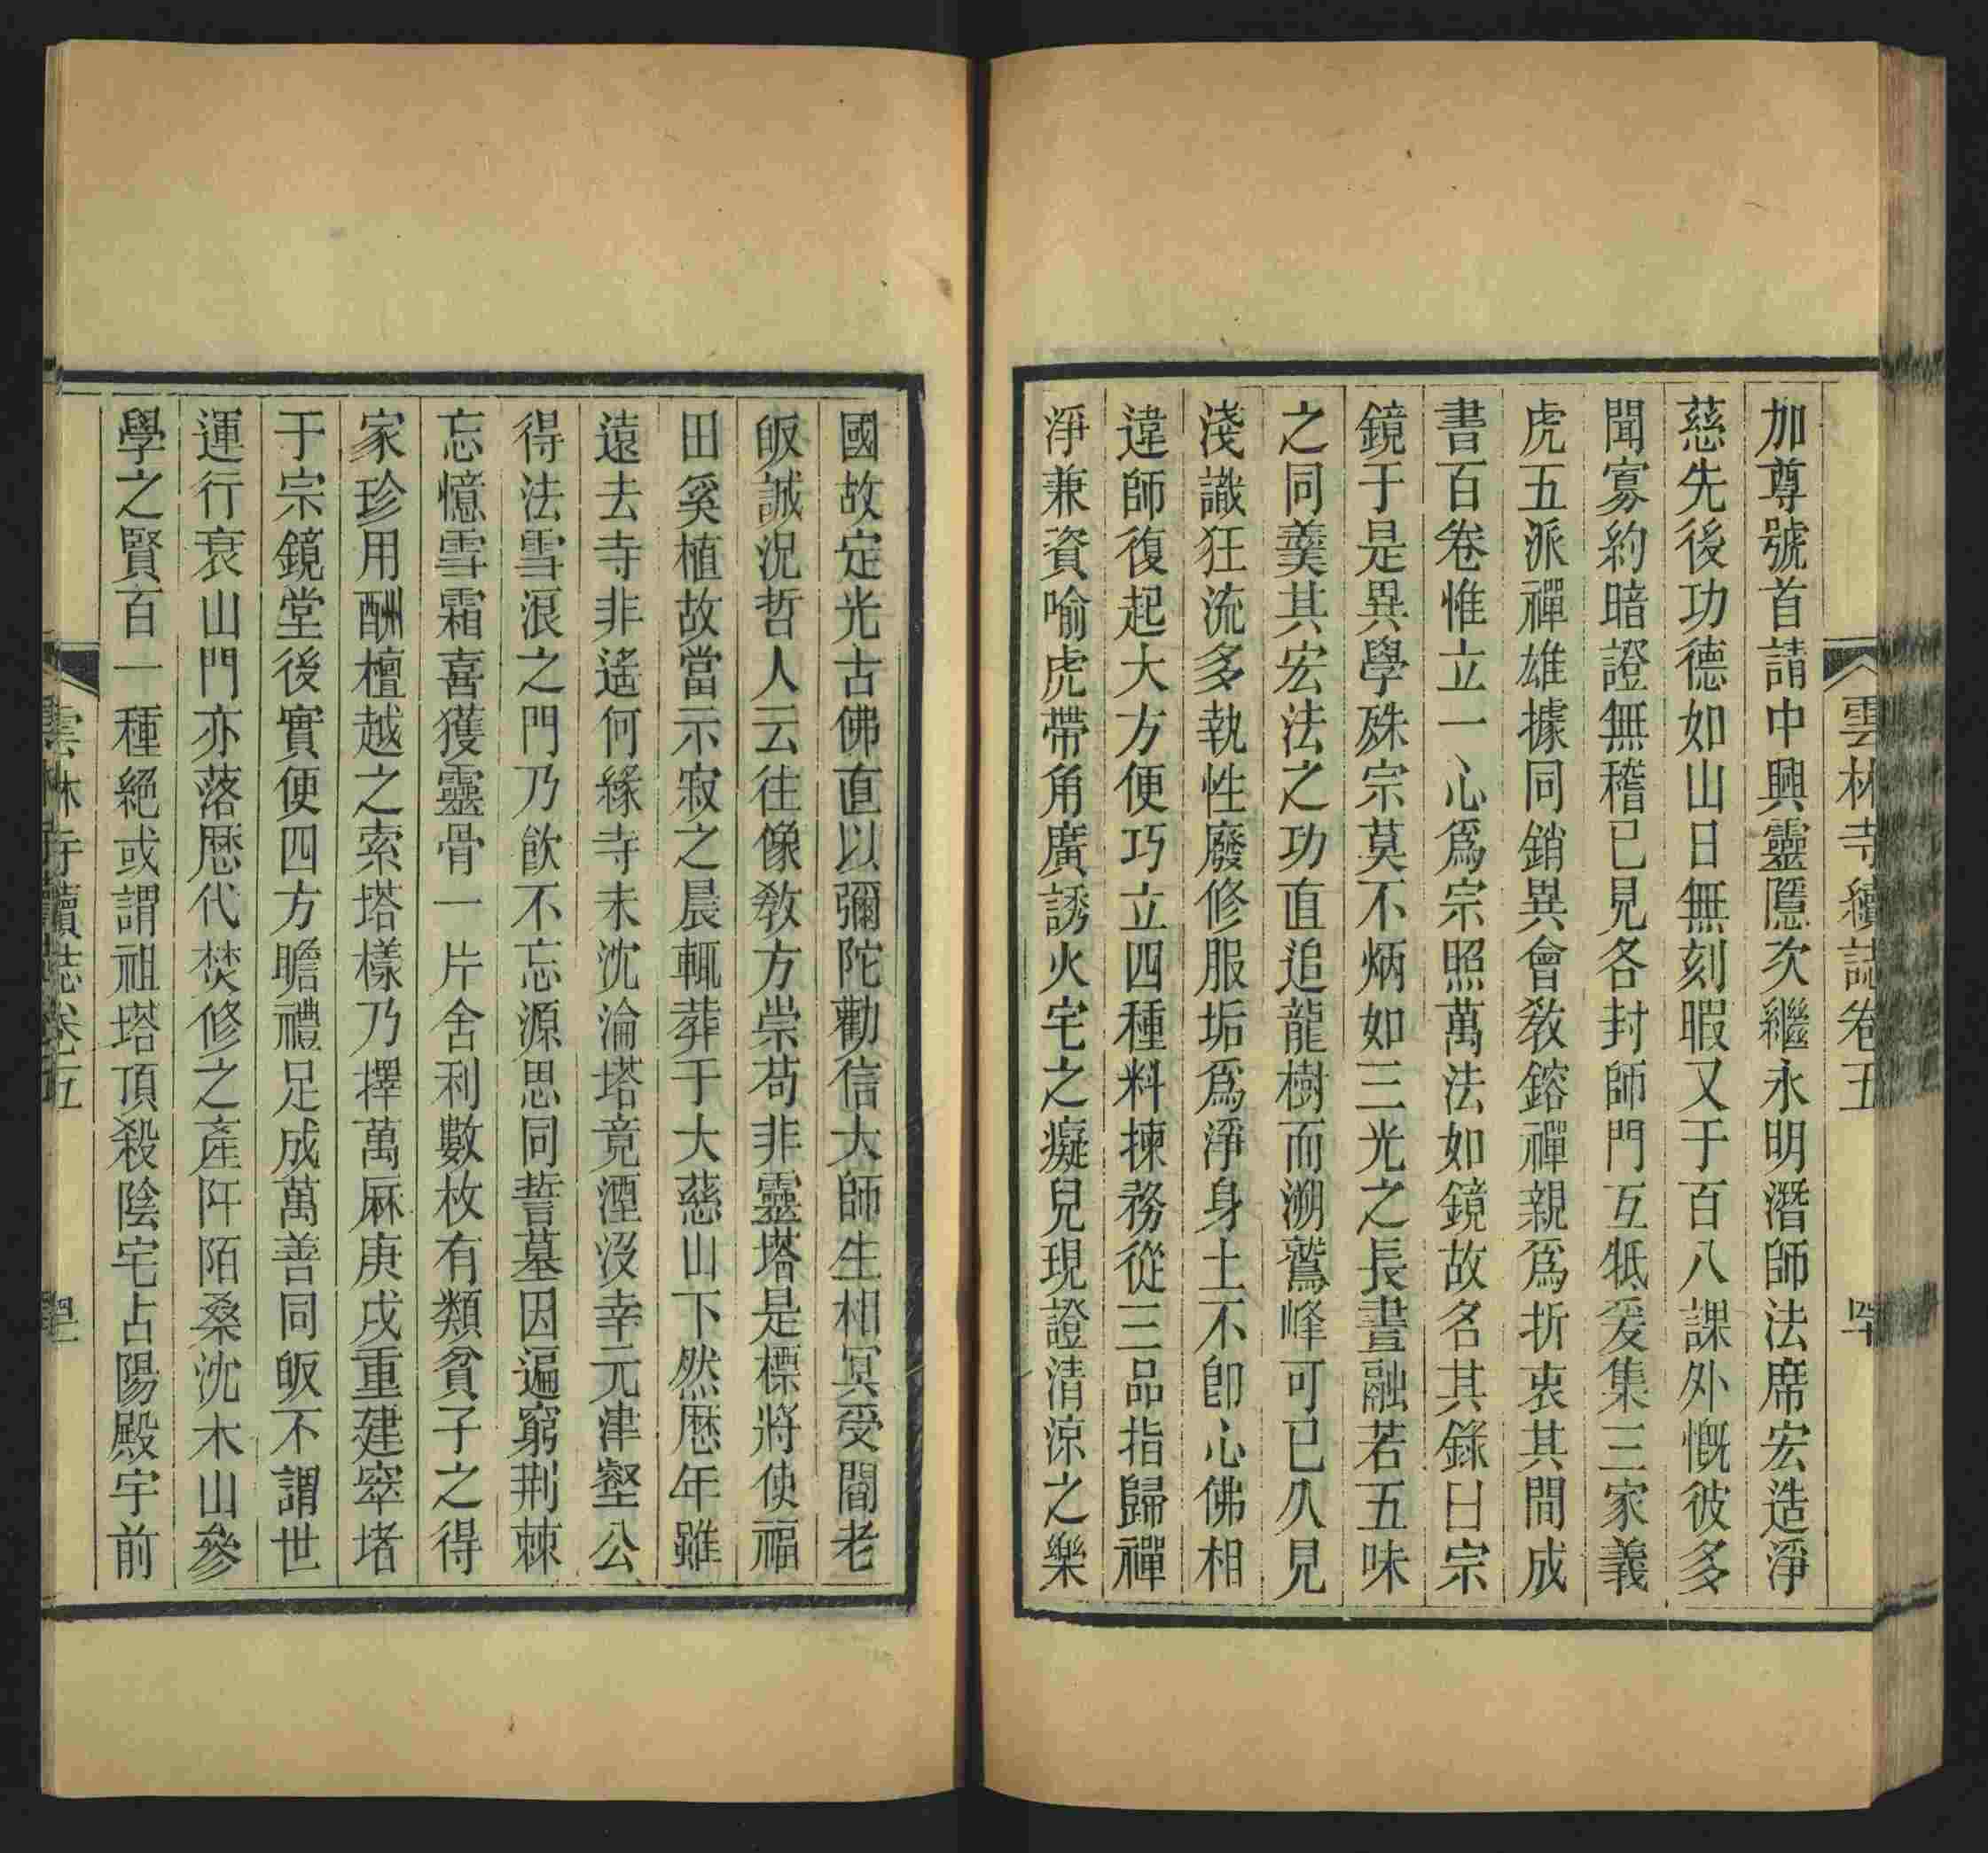 雲林寺續誌卷五
加尊號首請中興靈隱次繼永明潛師法席宏造淨
慈先後功德如山日無刻暇又于百八課外慨彼多
聞寡約暗證無稽已見各封師門互牴爰集三家義
虎五派禪雄據同銷異會教鎔禪親爲折衷其間成
書百卷惟立一心爲宗照萬法如鏡故名其錄曰宗
鏡于是異學殊宗莫不炳如三光之長晝融若五味
之同羹其宏法之功直追龍樹而溯鷲峰可已久見
淺識狂流多執性廢修服垢爲淨身土不卽心佛相
違師復起大方便巧立四種料揀務從三品指歸禪
淨兼資喻虎帶角廣誘火宅之癡兒現證清涼之樂
國故定光古佛直以彌陀勸信大師生相冥受閻老
皈誠況哲人云往像教方崇苟非靈塔是標將使福
田奚植故當示寂之晨輒葬于大慈山下然厯年雖
遠去寺非遙何緣寺未沈淪塔竟湮沒幸元津壑公
得法雪浪之門乃飮不忘源思同誓墓因遍窮荆棘
忘憶雪霜喜獲靈骨一片舍利數枚有類貧子之得
家珍用酬檀越之索塔樣乃擇萬厤庚戌重建窣堵
于宗鏡堂後實便四方瞻禮足成萬善同皈不謂世
運行衰山門亦落厯代焚修之產阡陌桑沈木山參
學之賢百一種絕或謂祖塔頂殺陰宅占陽殿宇前
雲林寺續誌卷五